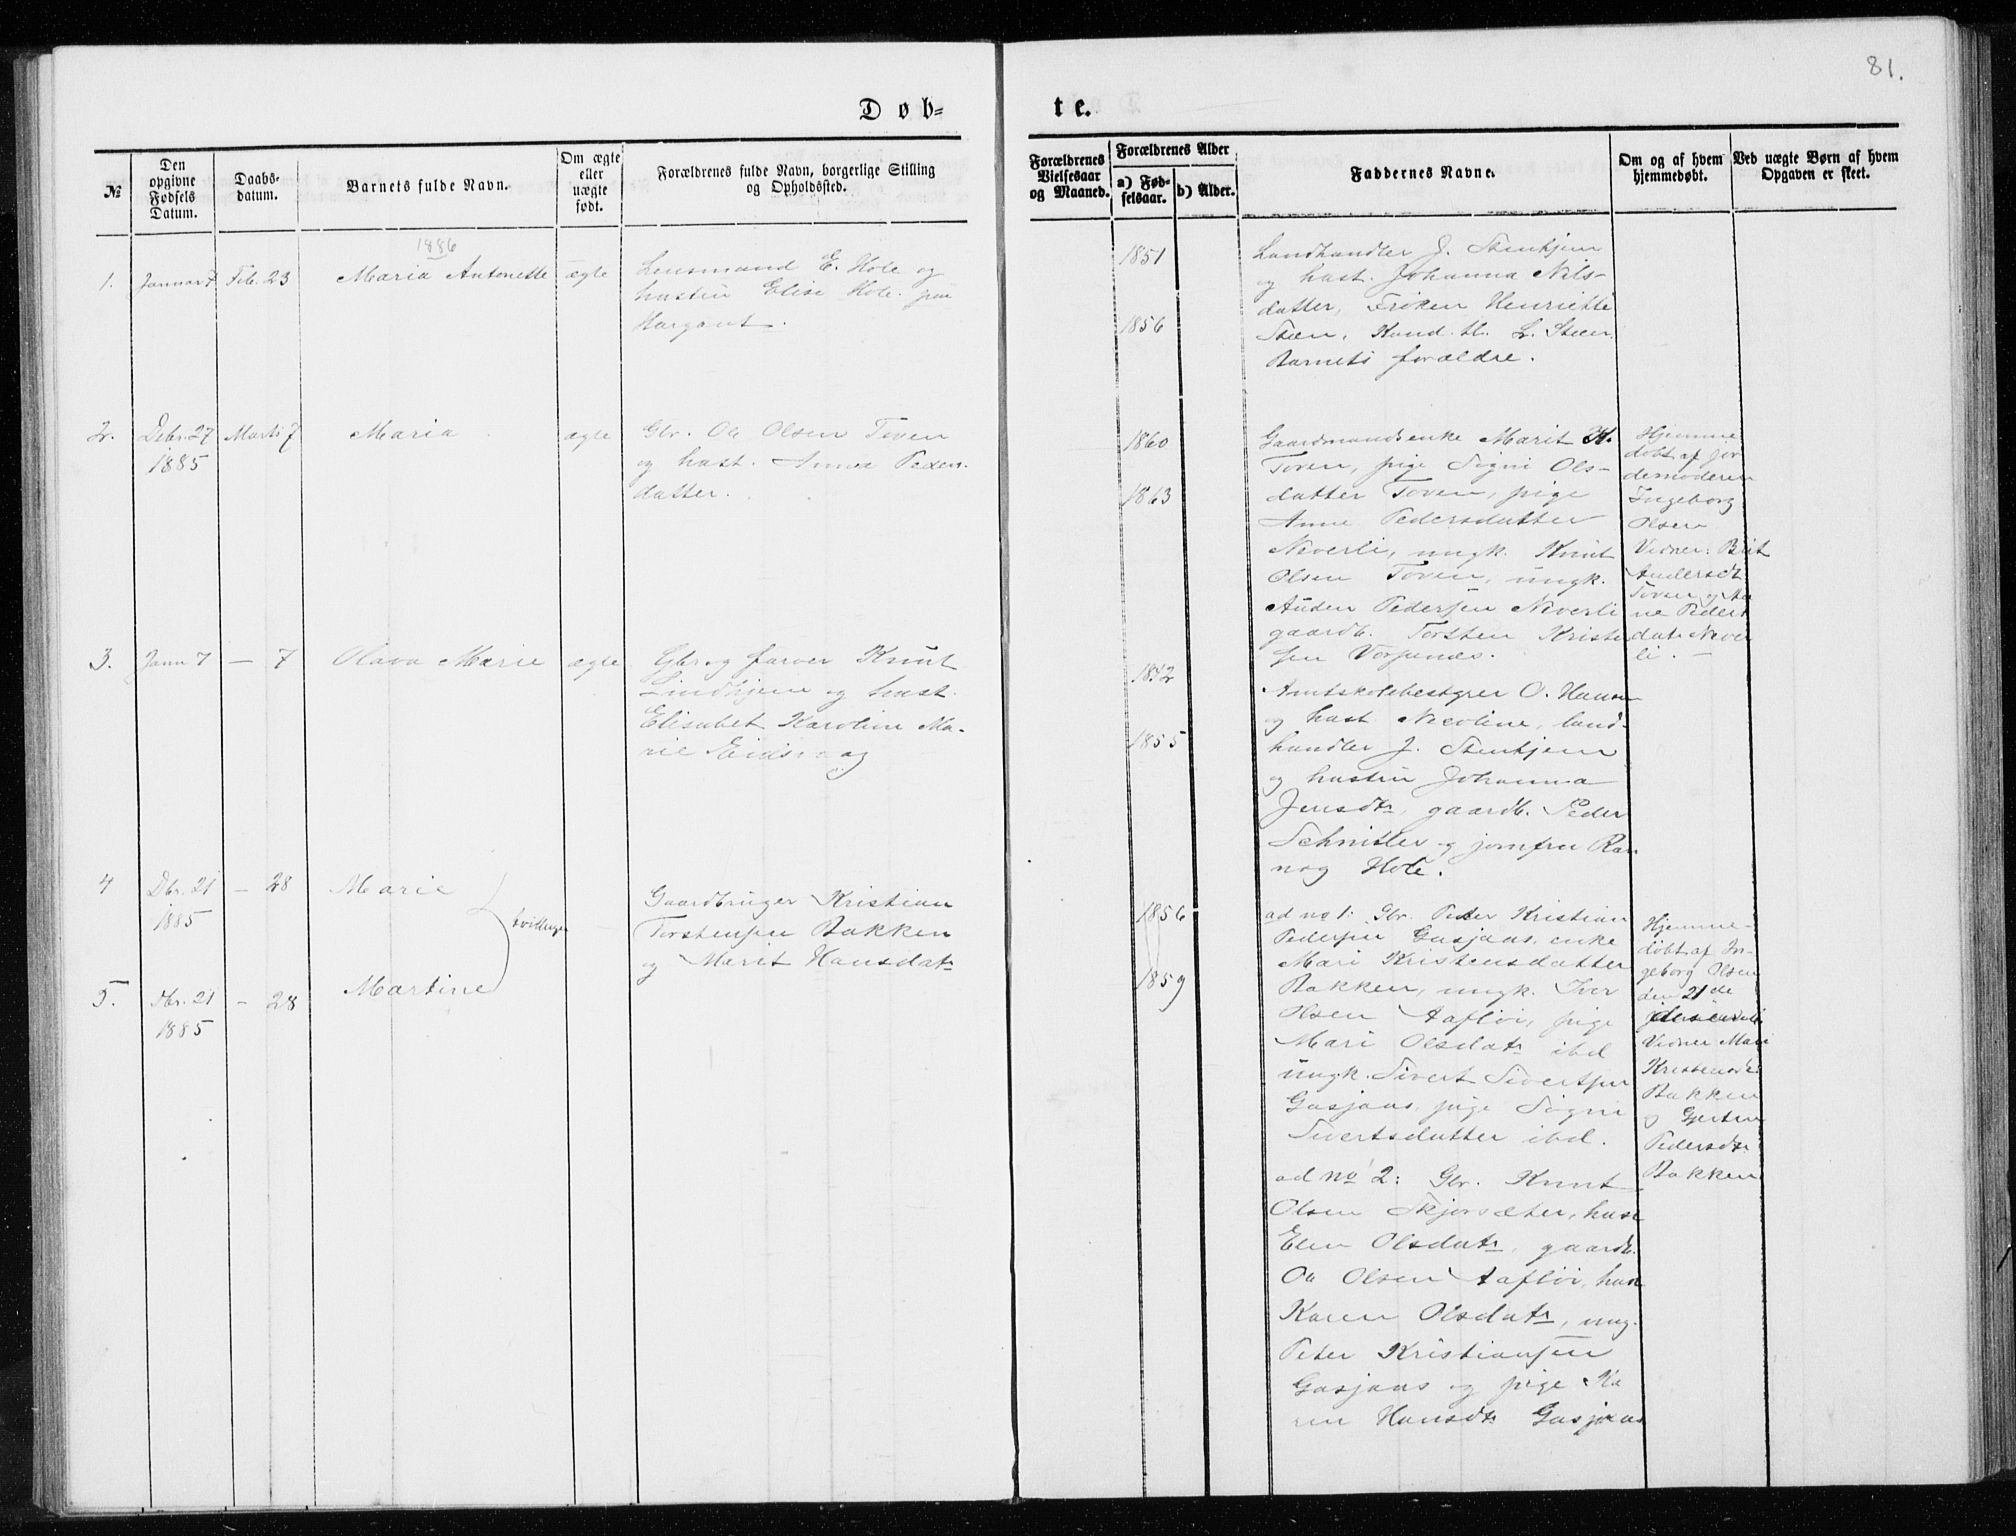 81.
Døb-
te.
№
Den opgivne Fødsels Datum.
Daabs-datum.
Barnets fulde Navn.
Om ægte eller uægte født.
Forældrenes fulde Navn, borgerlige Stilling og Opholdssted.
Forældrenes Vielsesaar og Maaned.
Forældrenes Alder
a) Fød-selsaar.
b) Alder.
Faddernes Navne.
Om og af hvem hjemmedøbt.
Ved uægte Børn af hvem Opgaven er skeet.
1886
1. Januar 7 Feb. 23 Maria Antonette ægte
Lensmand E. Hole og
hustru Elise Hole paa
1851
1856
Landhandler J. Stenkjem
og hust. Johanna Nils-
datter, Frøken Henriette
Steen, Kand. th. L. Steen
Barnets forældre.
2. Debr. 27 Marts 7 Maria ægte
1885
Gbr. Ole Olsen Toven
og hust. Anna Peders
datter.
1860
1863
Gaardmandsenke Marit K.
Toven, pige Signi Ols-
datter Toven, pige
Anne Pedersdatter
Neverli, ungk. Knut
Olsen Toven, ungk.
Auden Pedersen Neverli
gaardb. Torsten Kriste
sen
Hjemme
døbt af jor
demoderen
Ingeborg
Olsen
Vidner: Brit
Andersdt
Toven og An
ne Peders
dat. Never
li. —
3. Janu 7 — 7 Olava Marie ægte
Gbr og farver Knut
Lindhjem og hust.
Elisabet Karoline Ma-
rie Eidsvaag
1842
1855
Amtskolebestyrer O. Hansen
og hust Nicoline, land-
handler J. Stenkjem
og hustru Johanna
Jensdtr, gaardb. Peder
Schnitler og jomfru Ran
nog Hole.
4 Dbr. 21 — 28 Marie
1885
tvillinger
Gaardbruger Kristian
Torstensen Bakken
og Marit Hansdatr
5. Dbr. 21 — 28 Martine
1885
1856
1859
ad no 1: Gbr. Peter Kristian
Pedersen Gusjaas, enke
Mari Kristensdatter
Bakken, ungk. Iver
Olsen Aafløi, pige
Mari Olsdatr ibd
ungk. Sivert Sivertsen
Gusjaas, pige Signi
Sivertsdatter ibd.
ad no 2: Gbr. Knut
Olsen Skjorsæter, hust
Elen Olsdatr, gaardb.
Ole Olsen Aafløi, hust
Karen Olsdatr, ung.
Peter Kristiansen
Gusjaas og pige Ka
ren Hansdtr Gusjaas
Hjemme-
døbt af In-
geborg Olsen
den 21de
Vidner Mari
Kristensdt
Bakken
og Gjertru
Pedersdtr
Bakken